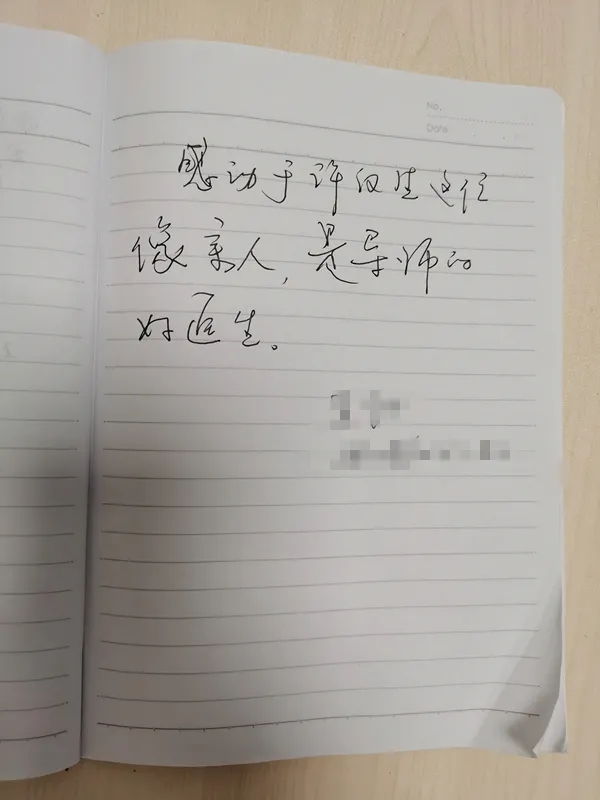 No.
Date
感动于许仪生这位
像亲人,是导师的
好医生。